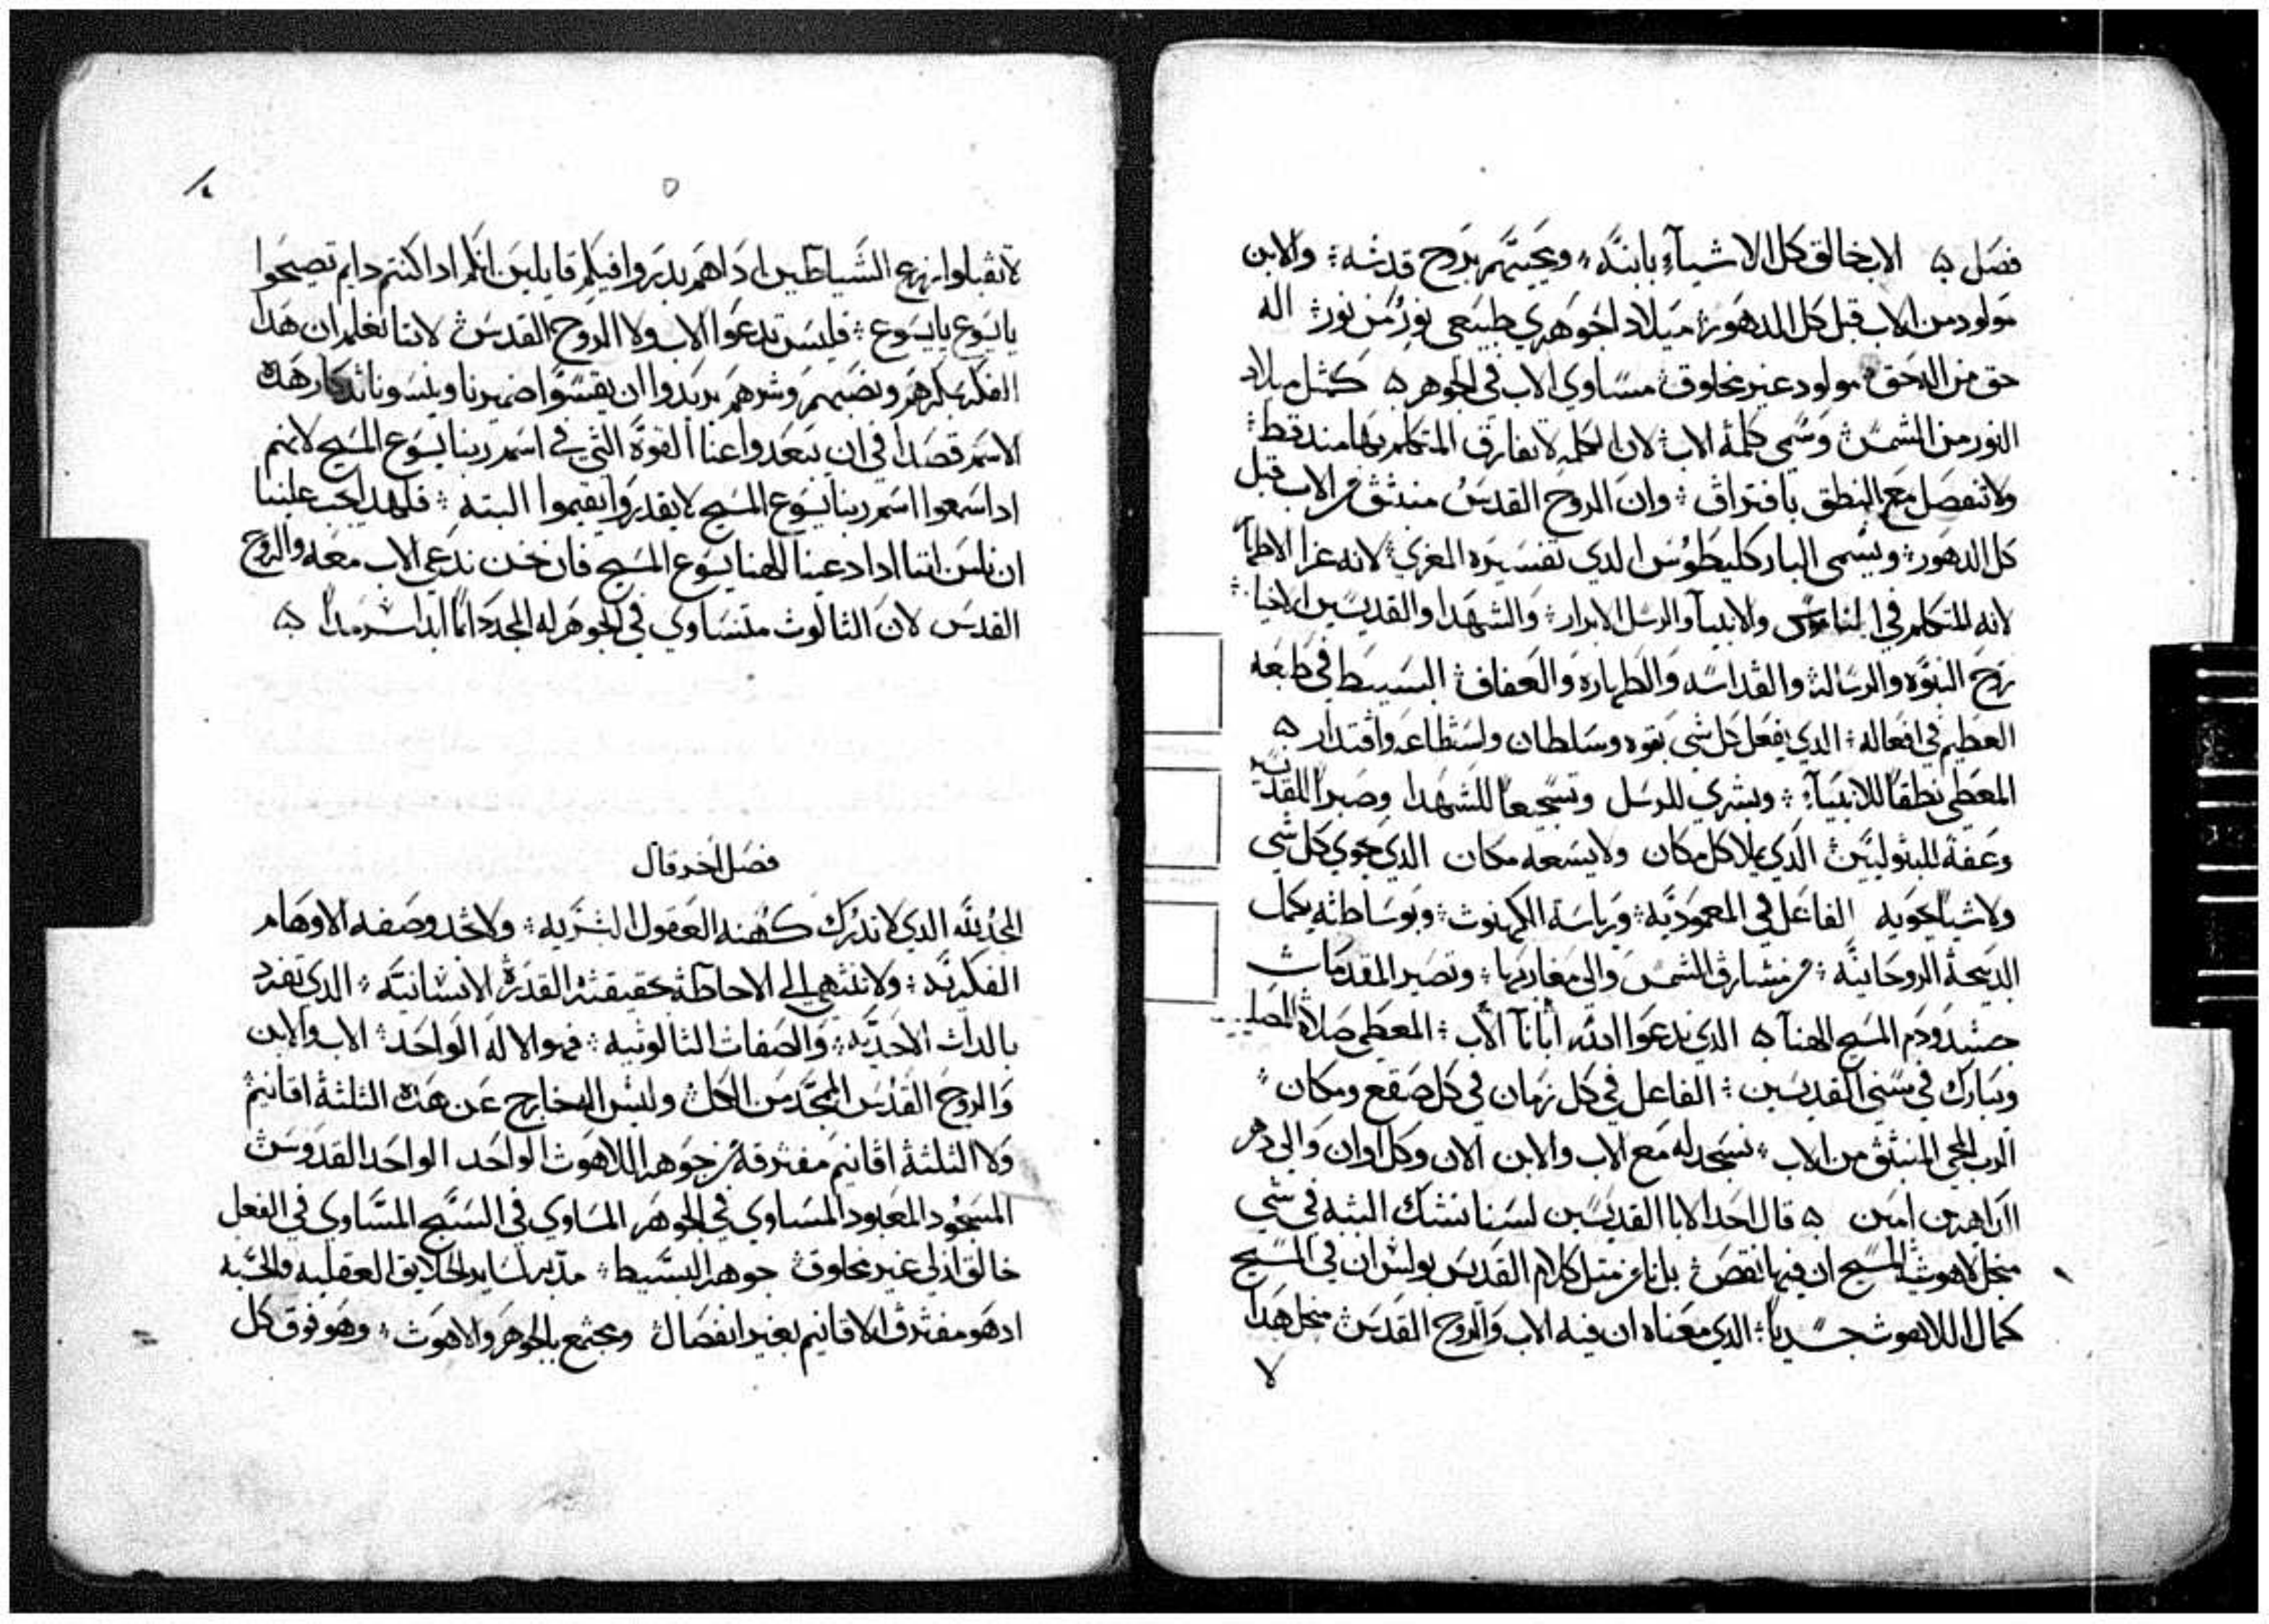 فصل ۞ الاب خالق كل الاشيآء بابنه ؛ ومحييهم بروح قدسه ؛ والابن
مولود من الاب قبل كل الدهور ؛ ميلادا جوهري طبيعي نورٌ من نور ؛ اله
حق من اله حق ؛ مولود غير مخلوق ؛ مساوي الاب في الجوهر ۞ كمثل ميلاد
النور من الشمس ؛ وسمي كلمة الاب ؛ لان الكلمه لا تفارق المتكلم بها منه قط ؛
ولا تنفصل مع النطق بافتراق ؛ وان الروح القدس منبثق من الاب قبل
كل الدهور ؛ ويسمى البارکليطوس الدي تفسيره المعزي ؛ لانه عزا الاطهار
لانه المتكلم في الناموس والانبيآ والرسل الابرار ؛ والشهدا والقديسين الاخيار ؛
روح النبوه والرساله والقداسه والطهاره والعفاف ؛ البسيط في طبعه
العظيم في افعاله ؛ الدي يفعل كل شي بقوه وسلطان واستطاعه واقتدار ۞
المعطي نطقًا للانبيآء ؛ وبشري للرسل وتشجيعًا للشهدا وصبرًا للقديسين
وعفة للبتوليين ؛ الدي يملا كل مكان ولا يسعه مكان الدي يحوي كل شي
ولا شيا يحويه الفاعل في المعموديه ؛ ورياسة الكهنوت ؛ وبوساطته يكمل
الدبيحة الروحانيه ؛ من مشارق الشمس والى مغاربها ؛ وتصير المقدمات
جسد ودم المسيح الهنا ۞ الدي ندعوا الله ابانا الاب ؛ المعطي صلاة للمصلي
وتبارك في سني القديسين ؛ الفاعل في كل زمان في كل صقع ومكان ؛
الرب المحيي المنبثق من الاب ؛ نسجد له مع الاب والابن الان وكل اوان والى دهر
الداهرين امين ۞ قال احد الابا القديسين لسنا نشك البته في شي
منجل لاهوت المسيح ان فيها نقص ؛ بل مثل كلام القديس بولس ان في المسيح
كمال اللاهوت جسديا ؛ الدي معناه ان فيه الاب والروح القدس منجل هدا
لا
٥
لا تقبلوا نزع الشياطين ادا هم بدروا فيكم قايلين انكم ادا كنتم دايم تصيحوا
يا يسوع يا يسوع ؛ فليس تدعوا الاب ولا الروح القدس ؛ لاننا نعلم ان هدا
الفكر بمكرهم ونصبهم وشرهم يريدوا ان يقسوا ضميرنا وينسونا تدكار هده
الاسم قصدا في ان يبعدوا عنا القوة التي في اسم ربنا يسوع المسيح لانهم
ادا سمعوا اسم ربنا يسوع المسيح لا يقدروا يقيموا البته ؛ فلهدا يجب علينا
ان نامن اننا ادا دعينا الهنا يسوع المسيح فان نحن ندعي الاب معه والروح
القدس لان الثالوث متساوي في الجوهر له المجد دائمًا ابدا سرمدا ۞
فصل اخر قال
الحمد لله الدي لا تدرك كنهه العقول البشريه ؛ ولا تحد وصفه الاوهام
الفكريه ؛ ولا تنتهي الي الاحاطة بحقيقته القدرة الانسانيه ؛ الدي تفرد
بالدات الاحديه ؛ والصفات الثالوثيه ؛ فهو الاله الواحد ؛ الاب والابن
والروح القدس المجد من الكل ؛ وليس اله خارج عن هده الثلثة اقانيم
ولا الثلثة اقانيم مفترقة من جوهر اللاهوت الواحد الواحد القدوس
المسجود المعبود المساوي في الجوهر المساوي في السبح المساوي في الفعل
خالق ازلي غير مخلوق جوهر البسيط ؛ مدبر لساير الخلايق العقليه والحسيه
اد هو مفترق الاقانيم بغير انفصال وبجتمع بالجوهر والاهوت ؛ وهو فوق كل